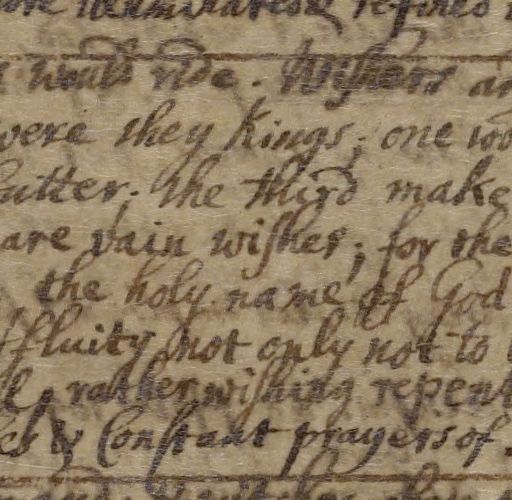 refines
would ride. Wishers
were they Kings; one
Gutter. The third make
are vain wishes; for the
the holy name of God
ffluity not only not to
rather wishing repent
& Constant prayers of